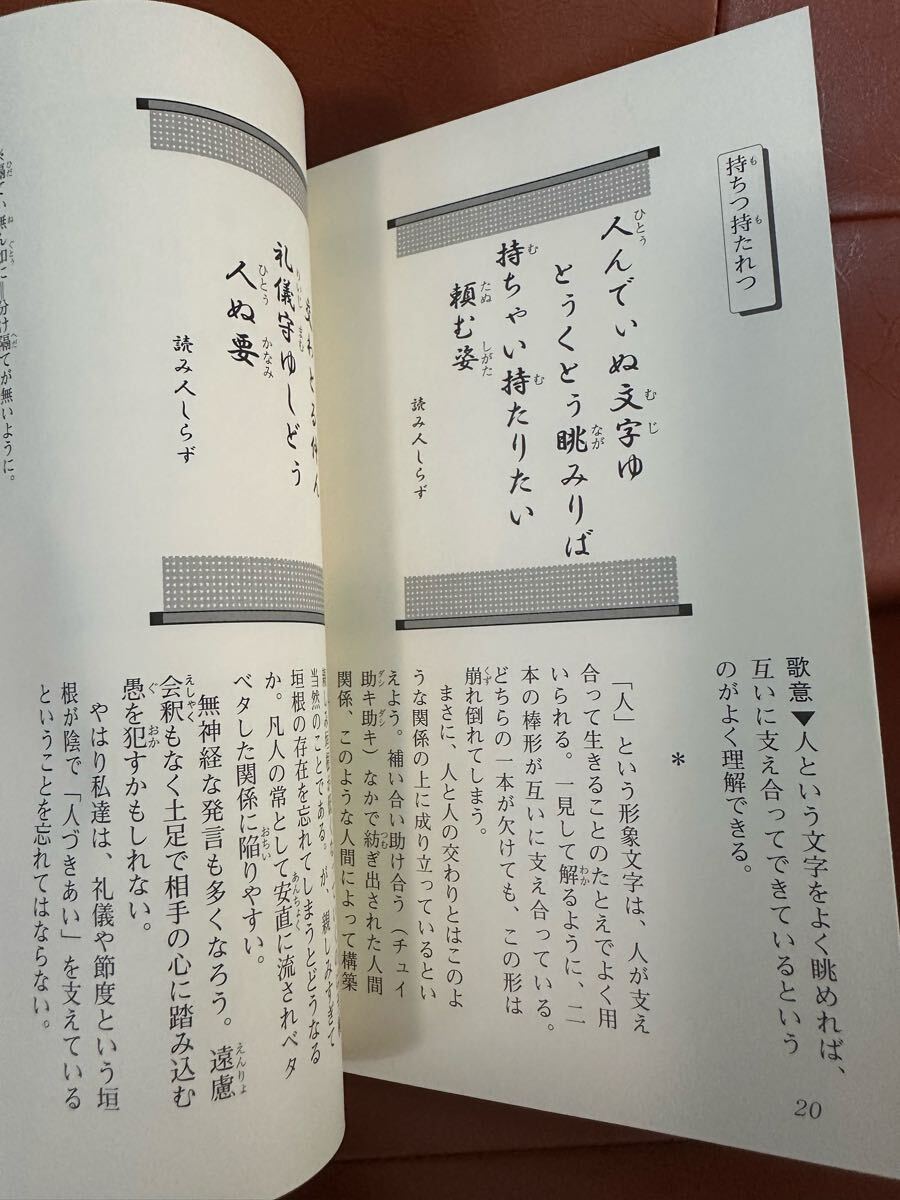 持ちつ持たれつ
人んでいぬ文字ゆ
とうくとう眺みりば
持ちゃい持たりたい
頼む姿
読み人しらず
歌意▼人という文字をよく眺めれば、
互いに支え合ってできているという
のがよく理解できる。
*
「人」という形象文字は、人が支え
合って生きることのたとえでよく用
いられる。一見して解るように、二
本の棒形が互いに支え合っている。
どちらの一本が欠けても、この形は
崩れ倒れてしまう。
まさに、人と人の交わりとはこのよ
うな関係の上に成り立っているとい
えよう。補い合い助け合う（チュイ
助キ助キ）なかで紡ぎ出された人間
関係、このような人間によって構築
20
礼儀守ゆしどう
人ぬ要
読み人しらず
当然のことである。が、親しみすぎて
垣根の存在を忘れてしまうとどうなる
か。凡人の常として安直に流されベタ
ベタした関係に陥りやすい。
無神経な発言も多くなろう。遠慮
会釈もなく土足で相手の心に踏み込む
愚を犯すかもしれない。
やはり私達は、礼儀や節度という垣
根が陰で「人づきあい」を支えている
ということを忘れてはならない。
分け隔てが無いように。